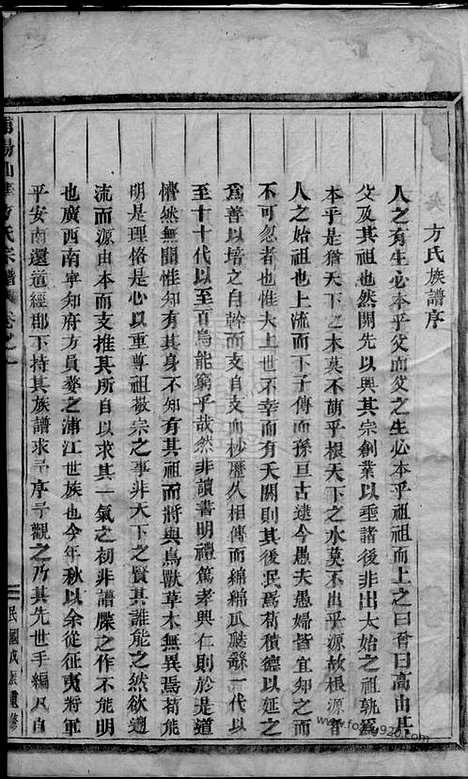 方氏族譜序
人之有生必本乎父而父之生必本乎祖祖而上之曰曾曰高由此
父及其祖也然開先以興其宗創業以垂諸後非出大始之祖孰爲
本乎是猶天下之木莫不萌乎根天下之水莫不出乎源故根源者
人之始祖也上流而下子傳而孫亘古逮今愚夫愚婦皆宜知之而
不可忽者也惟夫上世不幸而有夭閼則其後泯焉苟積德以延之
爲善以培之自幹而支自支而杪歷久相傳而綿綿瓜瓞繇一代以
至十十代以至百烏能窮乎哉然非讀書明禮篤孝興仁則於是道
懵然罔聞惟知有其身不知有其祖而將與鳥獸草木無異焉苟能
明是理恪是心以重尊祖敬宗之事非天下之賢其誰能之然欲遡
流而源由本而支推其所自以求其一氣之初非譜牒之作不能明
也廣西南寧知府方員婺之浦江世族也今年秋以余從征夷將軍
平安南還道經郡下持其族譜求予序予觀之乃其先世手編凡自
陽仙華方氏宗譜 卷之一
民國戊辰重修
www.fotku920.com